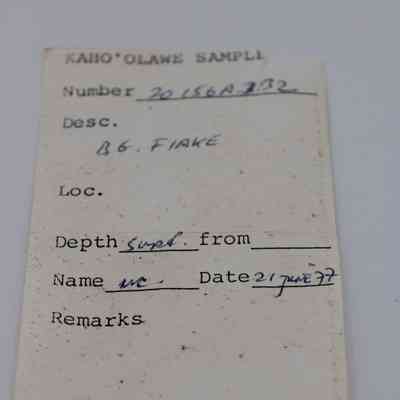 KAHO'OLAWE SAMPLE
Number
Desc.
BG. FLAKE
Loc.
Depth surf. from
Name Date 21 JUNE 77
Remarks